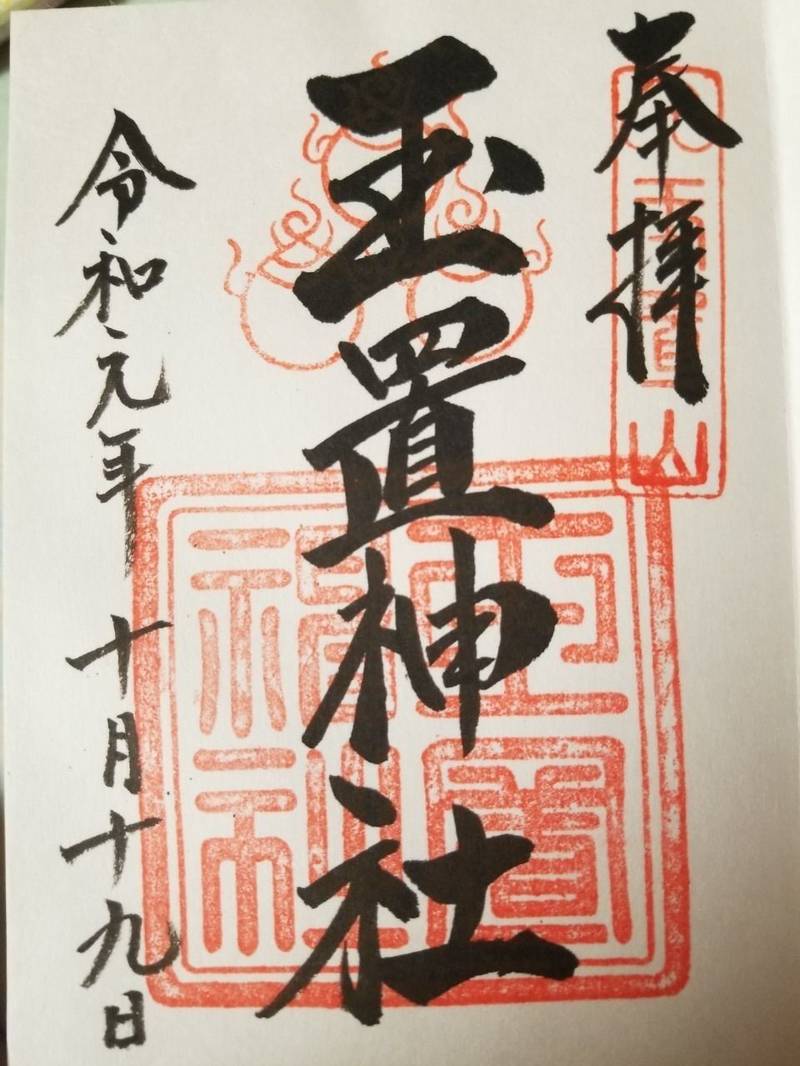 奉拝
玉置山
玉置神社
玉置神社
令和元年十月十九日